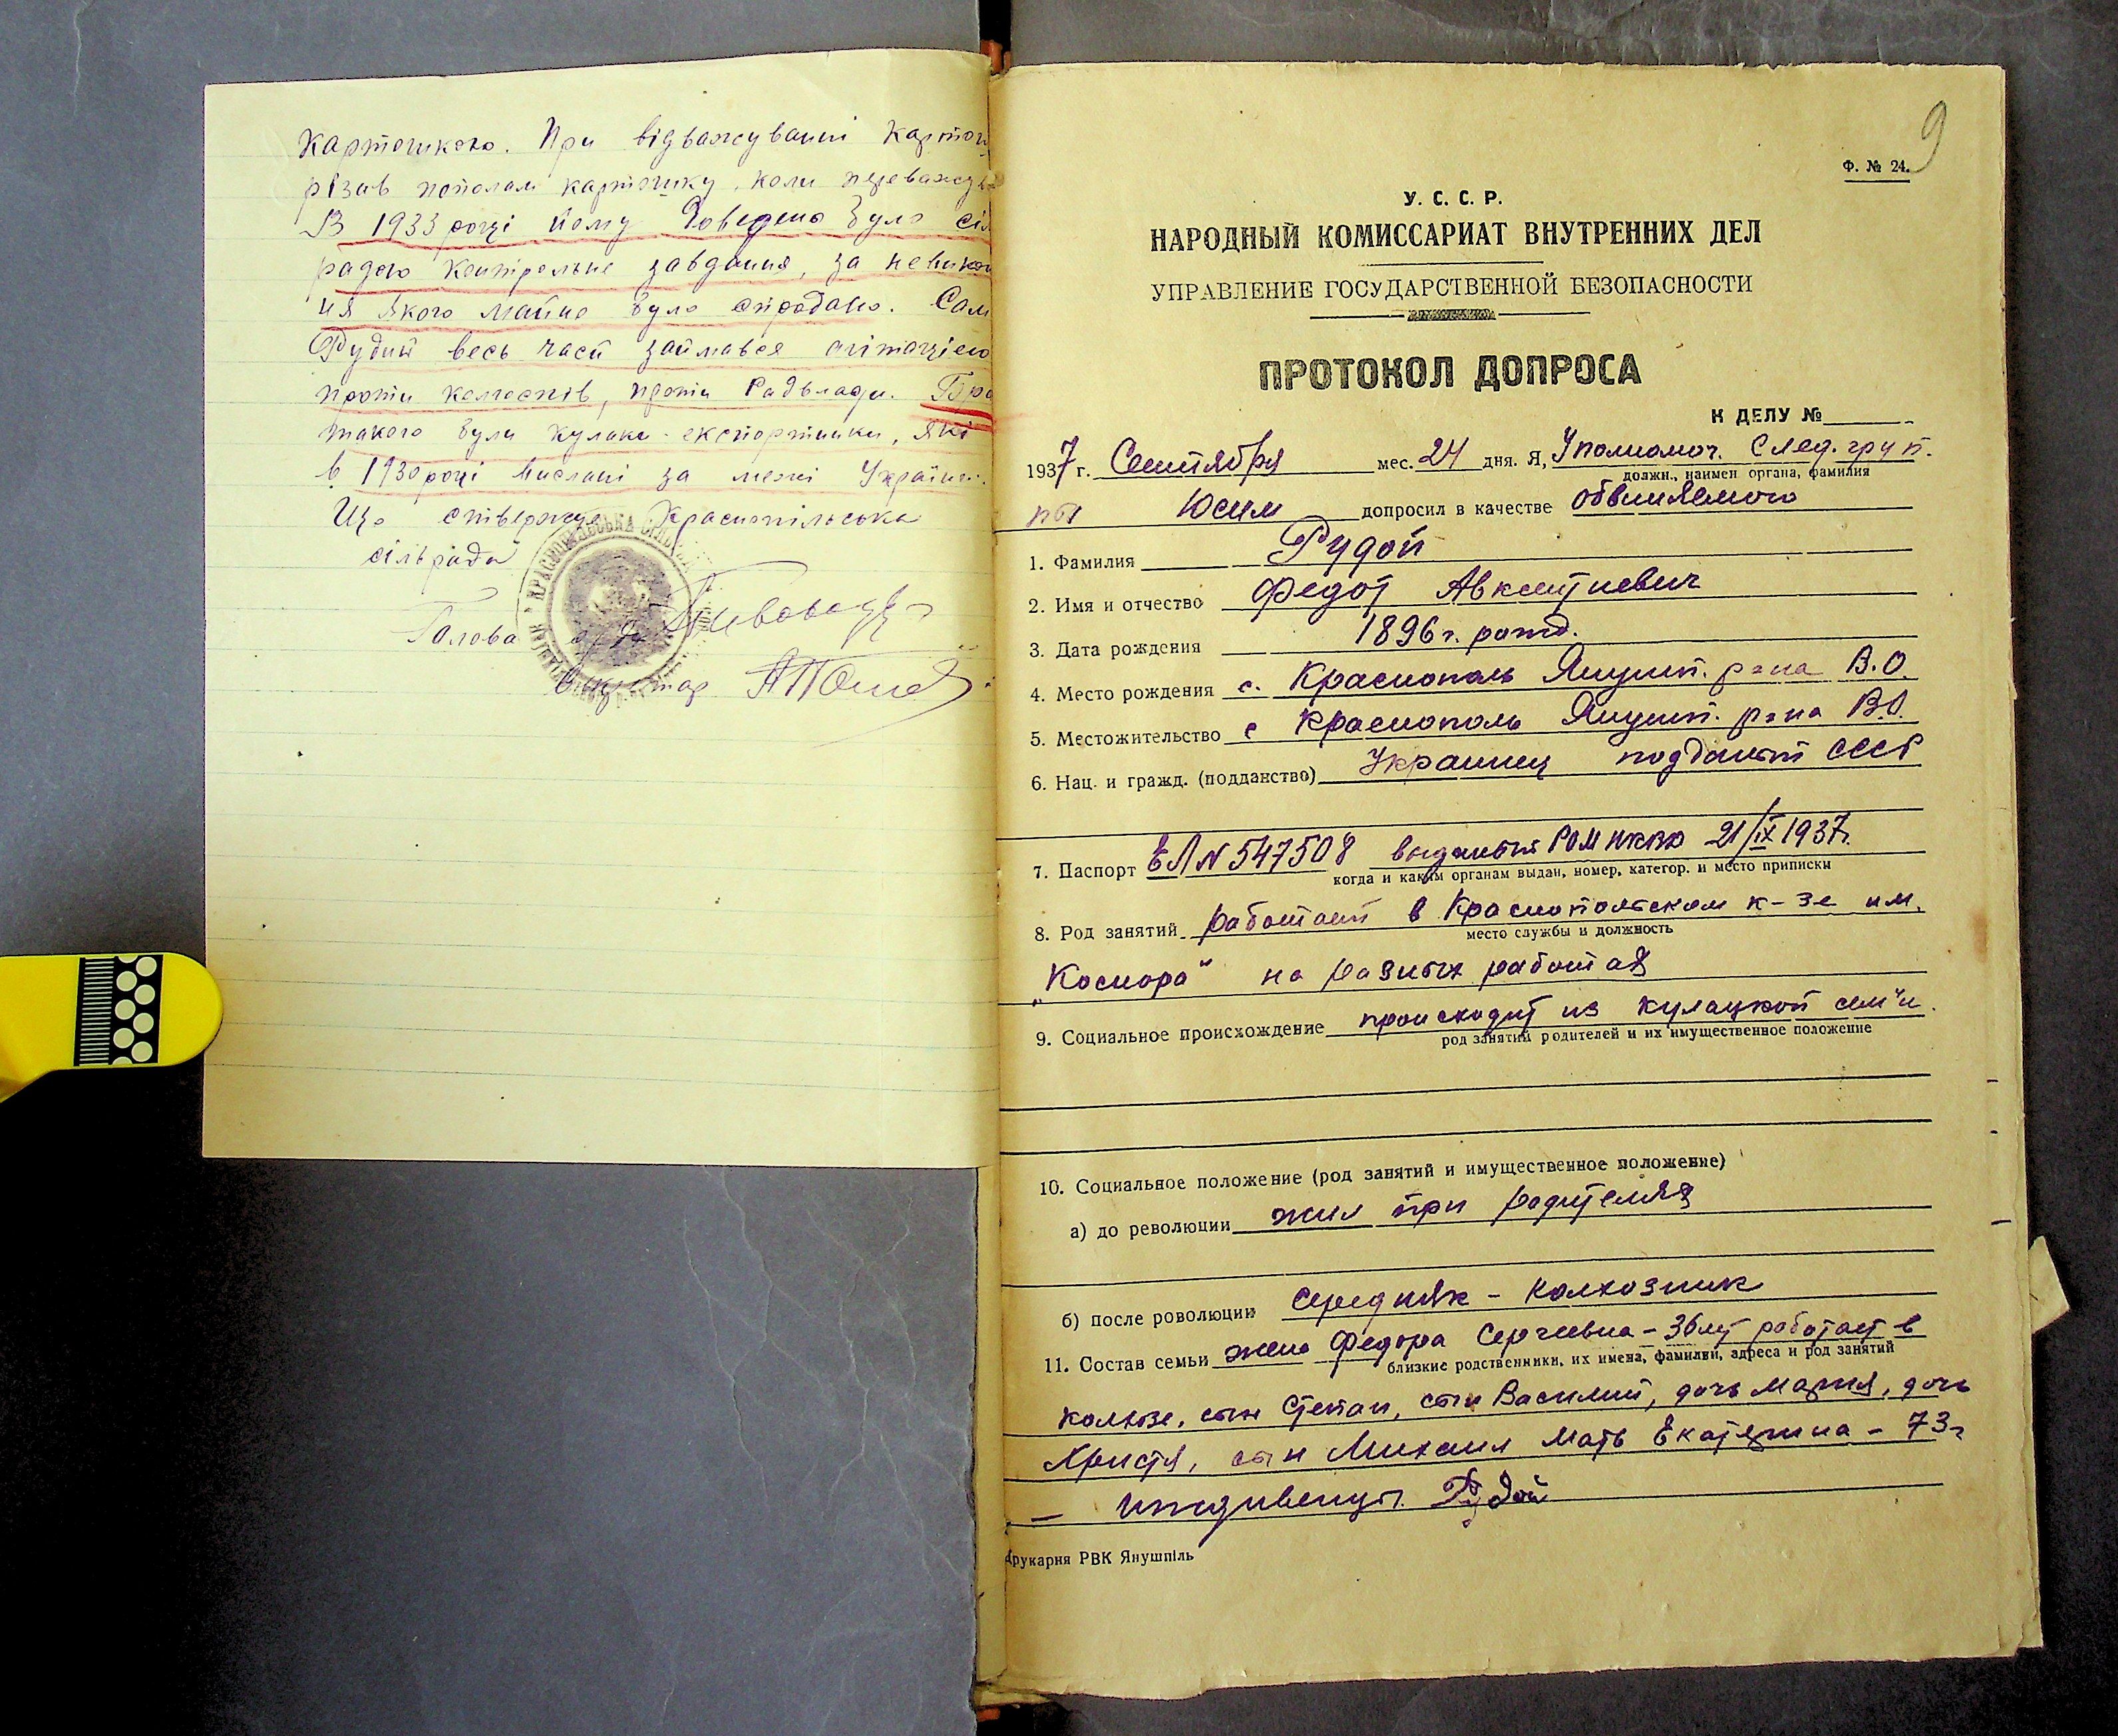 Картошкою. При відважуванні картош
різав пополам картошку, коли переважув
В 1933 році йому доведено було сіл
радою контрольне завдання, за невикон
ня якого майно було спродано. Сам
Рудий весь час займався агітацією
проти колгоспів, проти Радвлади. Бра
такого були кулаки-експортники, які
в 1930 році вислані за межі України.
Що стверджує Краснопільська
сільрада
Голова с/ради
Секретар
9
Ф. № 24.
У. С. С. Р.
НАРОДНЫЙ КОМИССАРИАТ ВНУТРЕННИХ ДЕЛ
УПРАВЛЕНИЕ ГОСУДАРСТВЕННОЙ БЕЗОПАСНОСТИ
ПРОТОКОЛ ДОПРОСА
К ДЕЛУ №
1937 г. Сентября мес. 24 дня. Я, Уполномоч. След. груп.
должн., наимен органа, фамилия
пы Юсим допросил в качестве обвиняемого
1. Фамилия Рудой
2. Имя и отчество Федот Авксентиевич
3. Дата рождения 1896 г. рожд.
4. Место рождения с. Краснополь Янушп. р-на В.О.
5. Местожительство с Краснополь Янушп. р-на В.О.
6. Нац. и гражд. (подданство) Украинец подданый СССР
7. Паспорт ЕЛ N 547508 выданый РОМ НКВД 21/IX 1937г.
когда и каким органам выдан, номер, категор. и место приписки
8. Род занятий работает в Краснопольском к-зе им.
место службы и должность
„Косиора" на разных работах
9. Социальное происхождение происходит из кулацкой сем"и.
род занятий родителей и их имущественное положение
10. Социальное положение (род занятий и имущественное положение)
а) до революции жил при родителях
б) после роволюции середняк - колхозник
11. Состав семьи жена Федора Сергеевна - 36 лет работает в
близкие родственники, их имена, фамилии, адреса и род занятий
колхозе, сын Степан, сын Василий, дочь Мария, дочь
Христя, сын Михаил мать Екатерина - 73 г
- иждивенцы. Рудой
Друкарня РВК Янушпіль